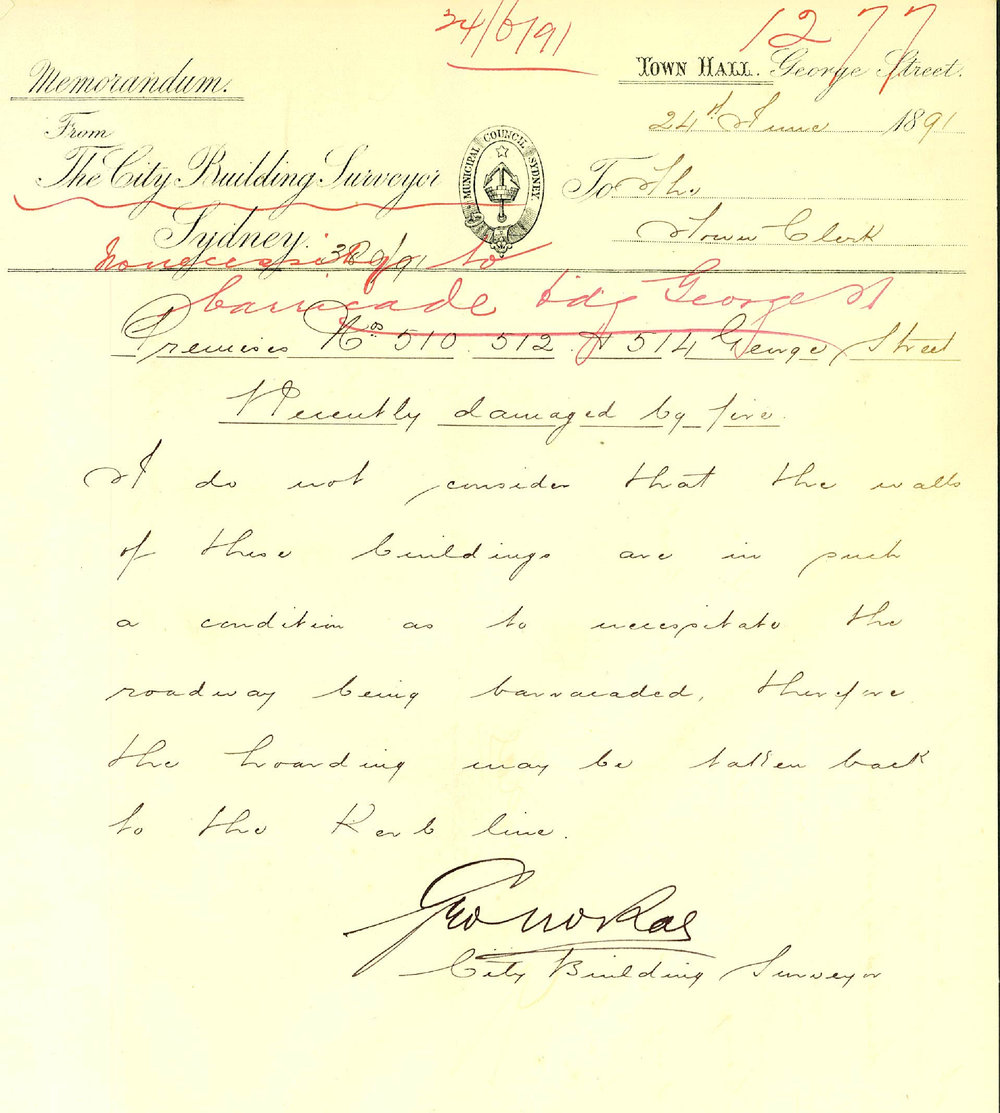 24/6/91
1277
Memorandum.
TOWN HALL. George Street.
24th June 1891
From
The City Building Surveyor
Sydney.
MUNICIPAL COUNCIL SYDNEY
To The
Town Clerk
to
barricade bdg George St
Premises Nos 510 512 & 514 George Street
Recently damaged by fire.
I do not consider that the walls
of these buildings are in such
a condition as to necessitate the
roadway being barracaded, therefore
the hoarding may be taken back
to the Kerb line.
Geo McRae
City Building Surveyor